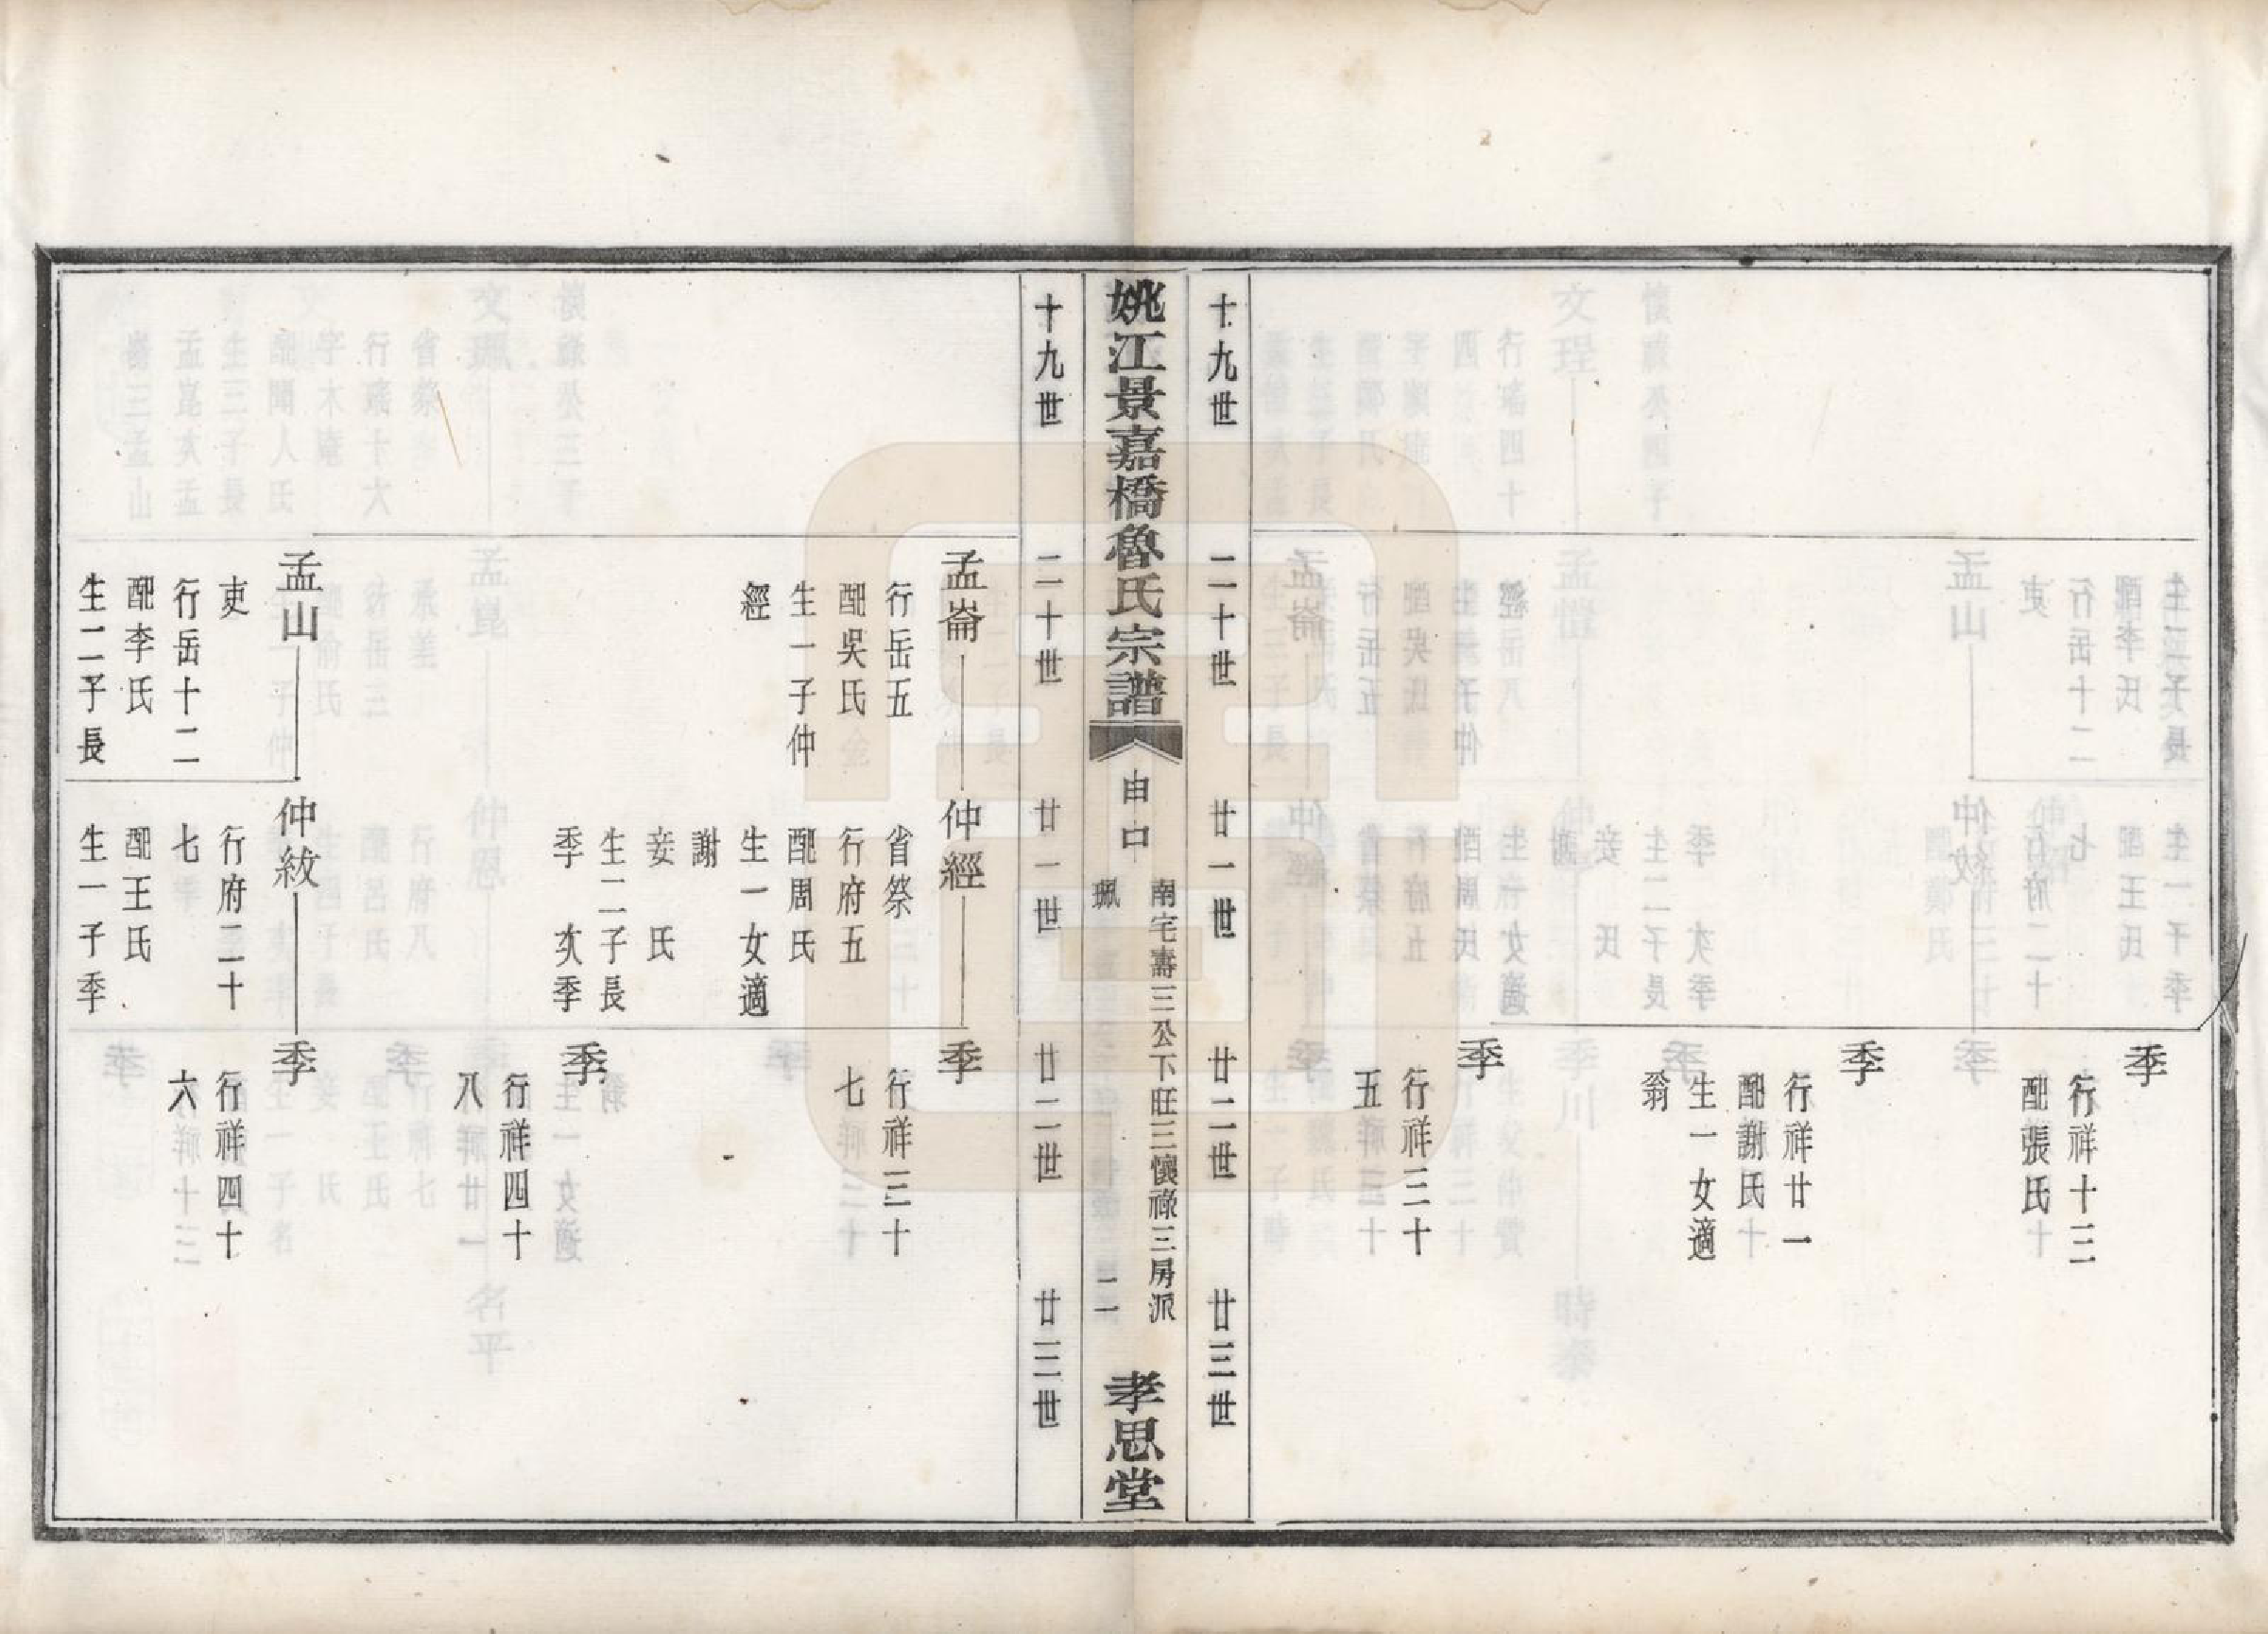 季
行祥十三
配張氏
季
行祥廿一
配謝氏
生一女適
翁
季
行祥三十
五
十九世 二十世 廿一世 廿二世 廿三世
姚江景嘉橋魯氏宗譜
由口
南宅壽三公下旺三懷祿三房派
珮 二一
孝思堂
十九世 二十世 廿一世 廿二世 廿三世
孟崙
行岳五
配吳氏
生一子仲
經
仲經
省祭
行府五
配周氏
生一女適
謝
妾 氏
生二子長
季 次季
季
行祥三十
七
季
行祥四十
八
孟山
吏
行岳十二
配李氏
生二子長
仲紋
行府二十
七
配王氏
生一子季
季
行祥四十
六